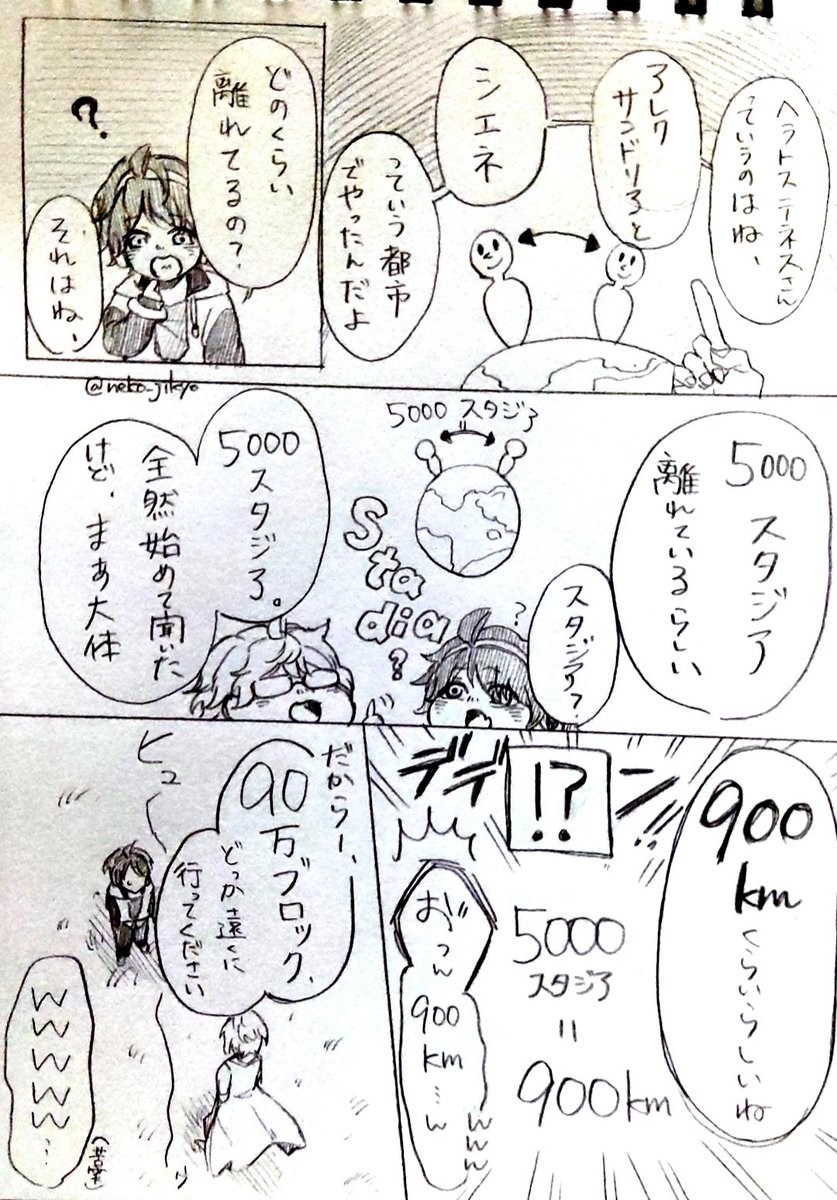 ヘラトステネスさん
っていうのはね、
アレク
サンドリアと
シエネ
っていう都市
でやったんだよ
どのくらい
離れてるの?
?
それはね、
@neko_jikyo
5000
スタジア
離れているらしい
スタジア?
?
5000 スタジア
Stadia?
5000
スタジア。
全然始めて聞いた
けど、まあ大体
900
km
くらいらしいね
デデーン
!?
5000
スタジア
=
900km
おっん
900
km…w
www
だからー、
90
万ブロック、
どっか遠くに
行ってください
ヒュ
ゥ
wwwww…
(苦笑)